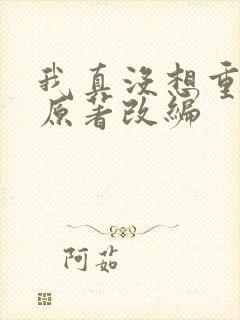 我真没想重
原著改编
阿茹